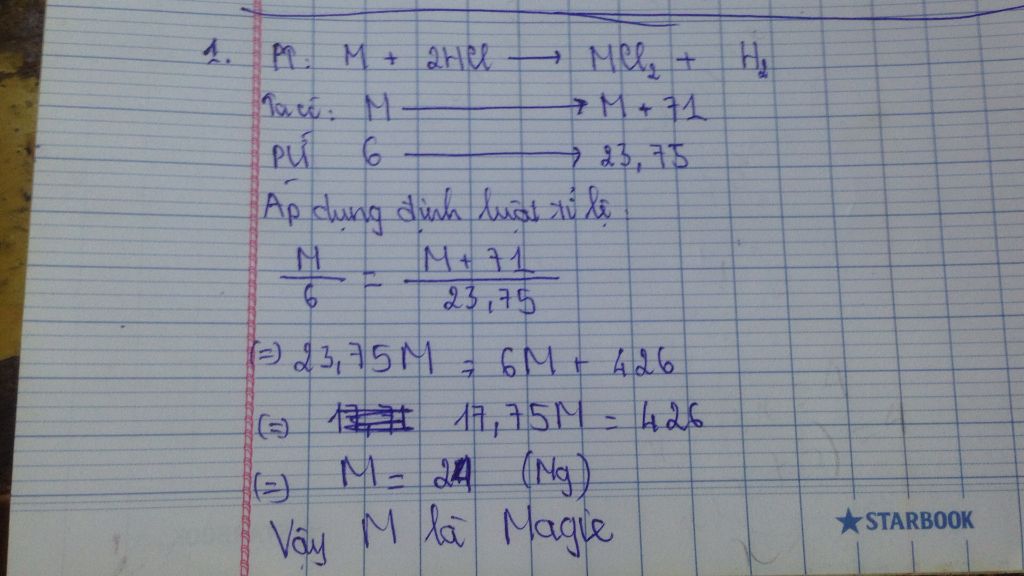 1. PT: M + 2HCl → MCl₂ + H₂
Ta có: M → M + 71
PƯ 6 → 23,75
Áp dụng định luật tỉ lệ
M/6 = M + 71/23,75
(=) 23,75M = 6M + 426
(=) 17,75M = 426
(=) M = 24 (Mg)
Vậy M là Magie
★STARBOOK